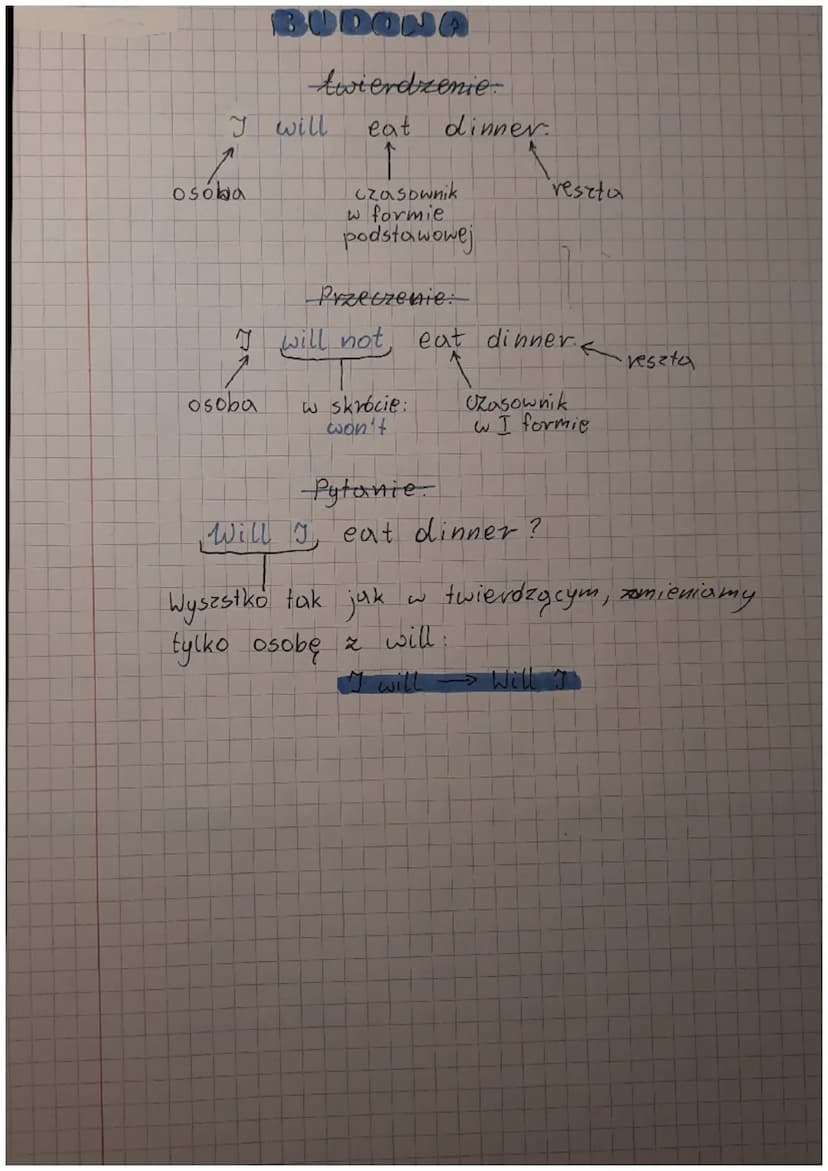 BUDOWA
twierdzenie:
I will eat dinner.
osoba
czasownik
w formie
podstawowej
reszta
Przeczenie:
I will not eat dinner.
reszta
osoba
w skrócie:
won't
czasownik
w I formie
Pytanie:
Will I eat dinner?
Wyszstko tak jak w twierdzącym, zmieniamy
tylko osobę z will:
I will → Will I